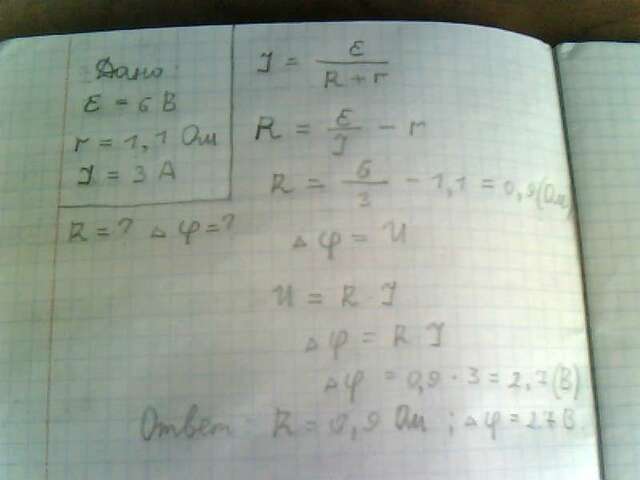 Дано:
ε = 6 В
r = 1,1 Ом
I = 3 А
R = ? Δφ = ?
I = ε / (R + r)
R = ε / I - r
R = 6 / 3 - 1,1 = 0,9 (Ом)
Δφ = U
U = R I
Δφ = R I
Δφ = 0,9 · 3 = 2,7 (В)
Ответ: R = 0,9 Ом ; Δφ = 2,7 В.